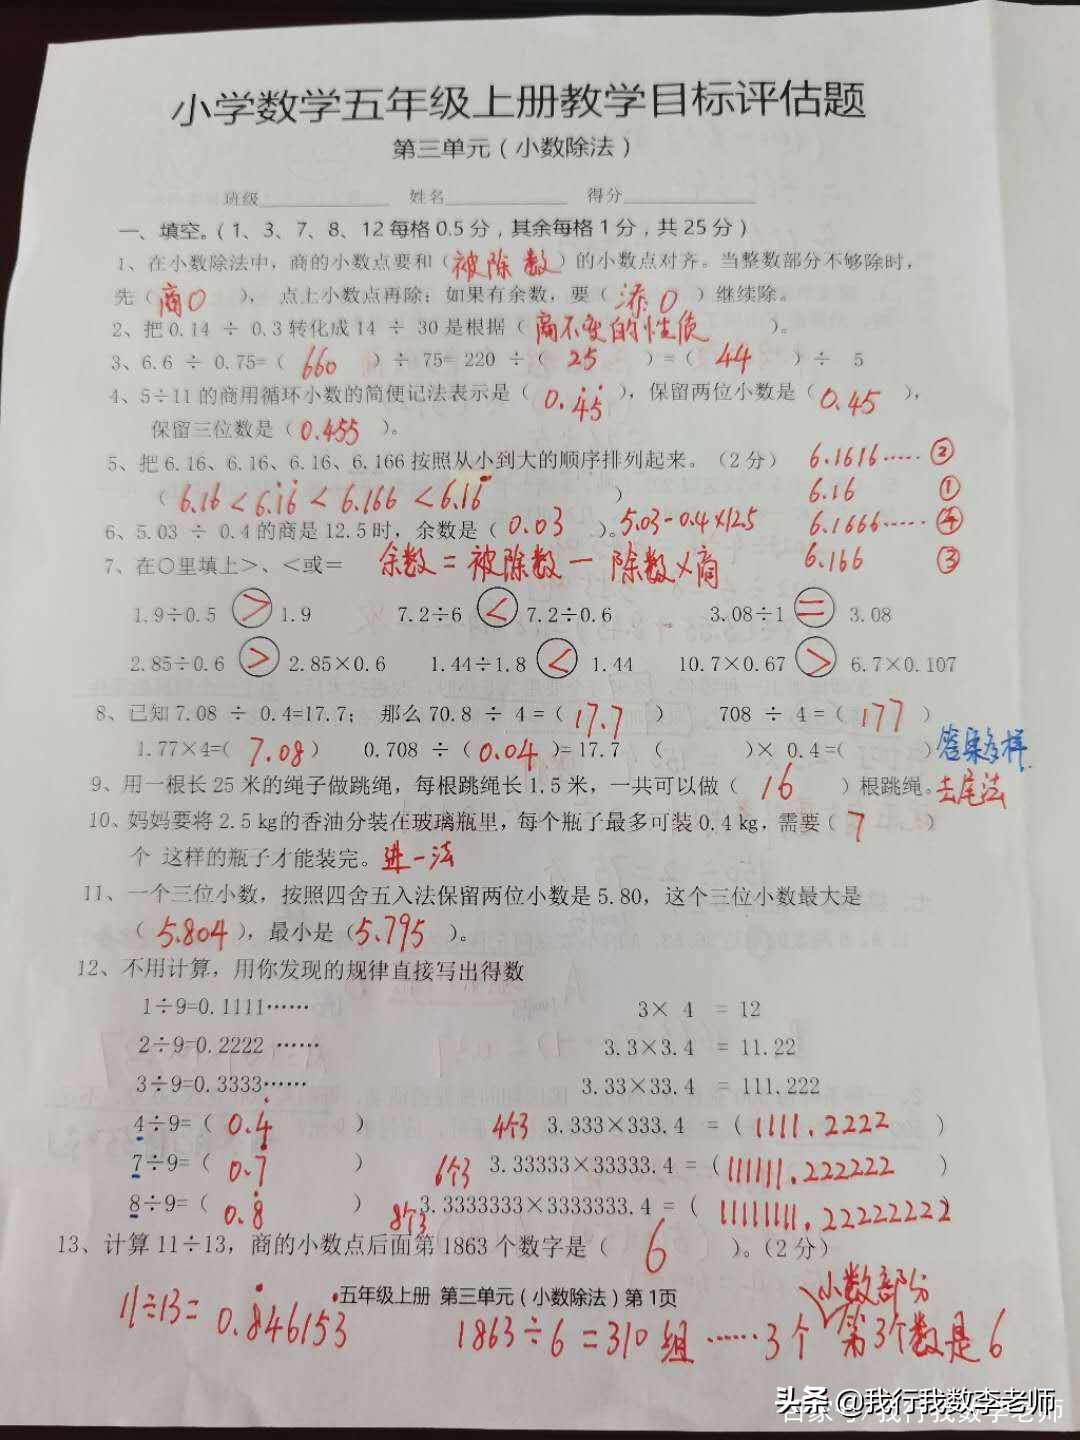 小学数学五年级上册教学目标评估题
第三单元（小数除法）
班级____________ 姓名____________ 得分____________
一、填空。（1、3、7、8、12每格0.5分，其余每格1分，共25分）
1、在小数除法中，商的小数点要和（被除数）的小数点对齐。当整数部分不够除时，
先（商0），点上小数点再除；如果有余数，要（添0）继续除。
2、把0.14 ÷ 0.3转化成14 ÷ 30是根据（商不变的性质）。
3、6.6 ÷ 0.75=（660）÷ 75= 220 ÷（25）=（44）÷ 5
4、5÷11的商用循环小数的简便记法表示是（0.4̇5̇），保留两位小数是（0.45），
保留三位数是（0.455）。
5、把6.16、6.16、6.16、6.166按照从小到大的顺序排列起来。（2分） 6.1616…… ②
（6.16＜6.1̇6̇＜6.166＜6.16̇） 6.16 ①
6、5.03 ÷ 0.4的商是12.5时，余数是（0.03）。5.03-0.4×12.5 6.1666…… ④
7、在○里填上>、<或= 余数=被除数-除数×商 6.166 ③
1.9÷0.5 > 1.9 7.2÷6 < 7.2÷0.6 3.08÷1 = 3.08
2.85÷0.6 > 2.85×0.6 1.44÷1.8 < 1.44 10.7×0.67 > 6.7×0.107
8、已知7.08 ÷ 0.4=17.7； 那么70.8 ÷ 4 =（17.7） 708 ÷ 4 =（177）
1.77×4=（7.08） 0.708 ÷（0.04）= 17.7 （ ）× 0.4 =（ ）答案多样
9、用一根长25米的绳子做跳绳，每根跳绳长1.5米，一共可以做（16）根跳绳。去尾法
10、妈妈要将2.5㎏的香油分装在玻璃瓶里，每个瓶了最多可装0.4㎏，需要（7）
个 这样的瓶子才能装完。进一法
11、一个三位小数，按照四舍五入法保留两位小数是5.80，这个三位小数最大是
（5.804），最小是（5.795）。
12、不用计算，用你发现的规律直接写出得数
1÷9=0.1111…… 3× 4 = 12
2÷9=0.2222 …… 3.3×3.4 = 11.22
3÷9=0.3333…… 3.33×33.4 = 111.222
4÷9=（0.4̇） 4个3 3.333×333.4 =（1111.2222）
7÷9=（0.7̇） 6个3 3.33333×33333.4 =（111111.222222）
8÷9=（0.8̇） 8个3 3.3333333×3333333.4 =（11111111.22222222）
13、计算11÷13，商的小数点后面第1863个数字是（6）。（2分）
五年级上册 第三单元（小数除法）第1页 小数部分
11÷13= 0.8̇46153̇ 1863÷6=310组……3个 第3个数是6
头条 @我行我数李老师
百家号/我行我数李老师